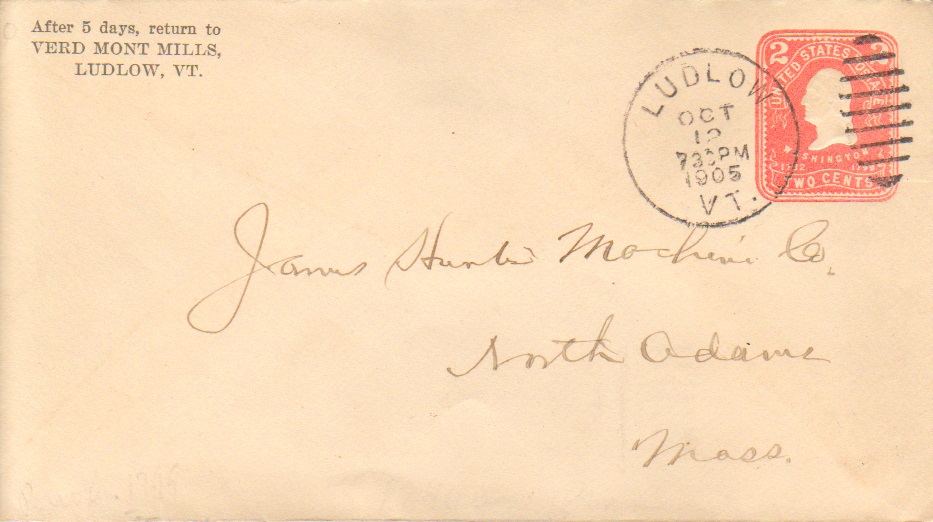 After 5 days, return to
VERD MONT MILLS,
LUDLOW, VT.
LUDLOW
OCT
12
730PM
1905
VT.
2 2
UNITED STATES OF AMERICA
WASHINGTON
1732 1799
TWO CENTS
James Hunter Machine Co.
North Adams
Mass.